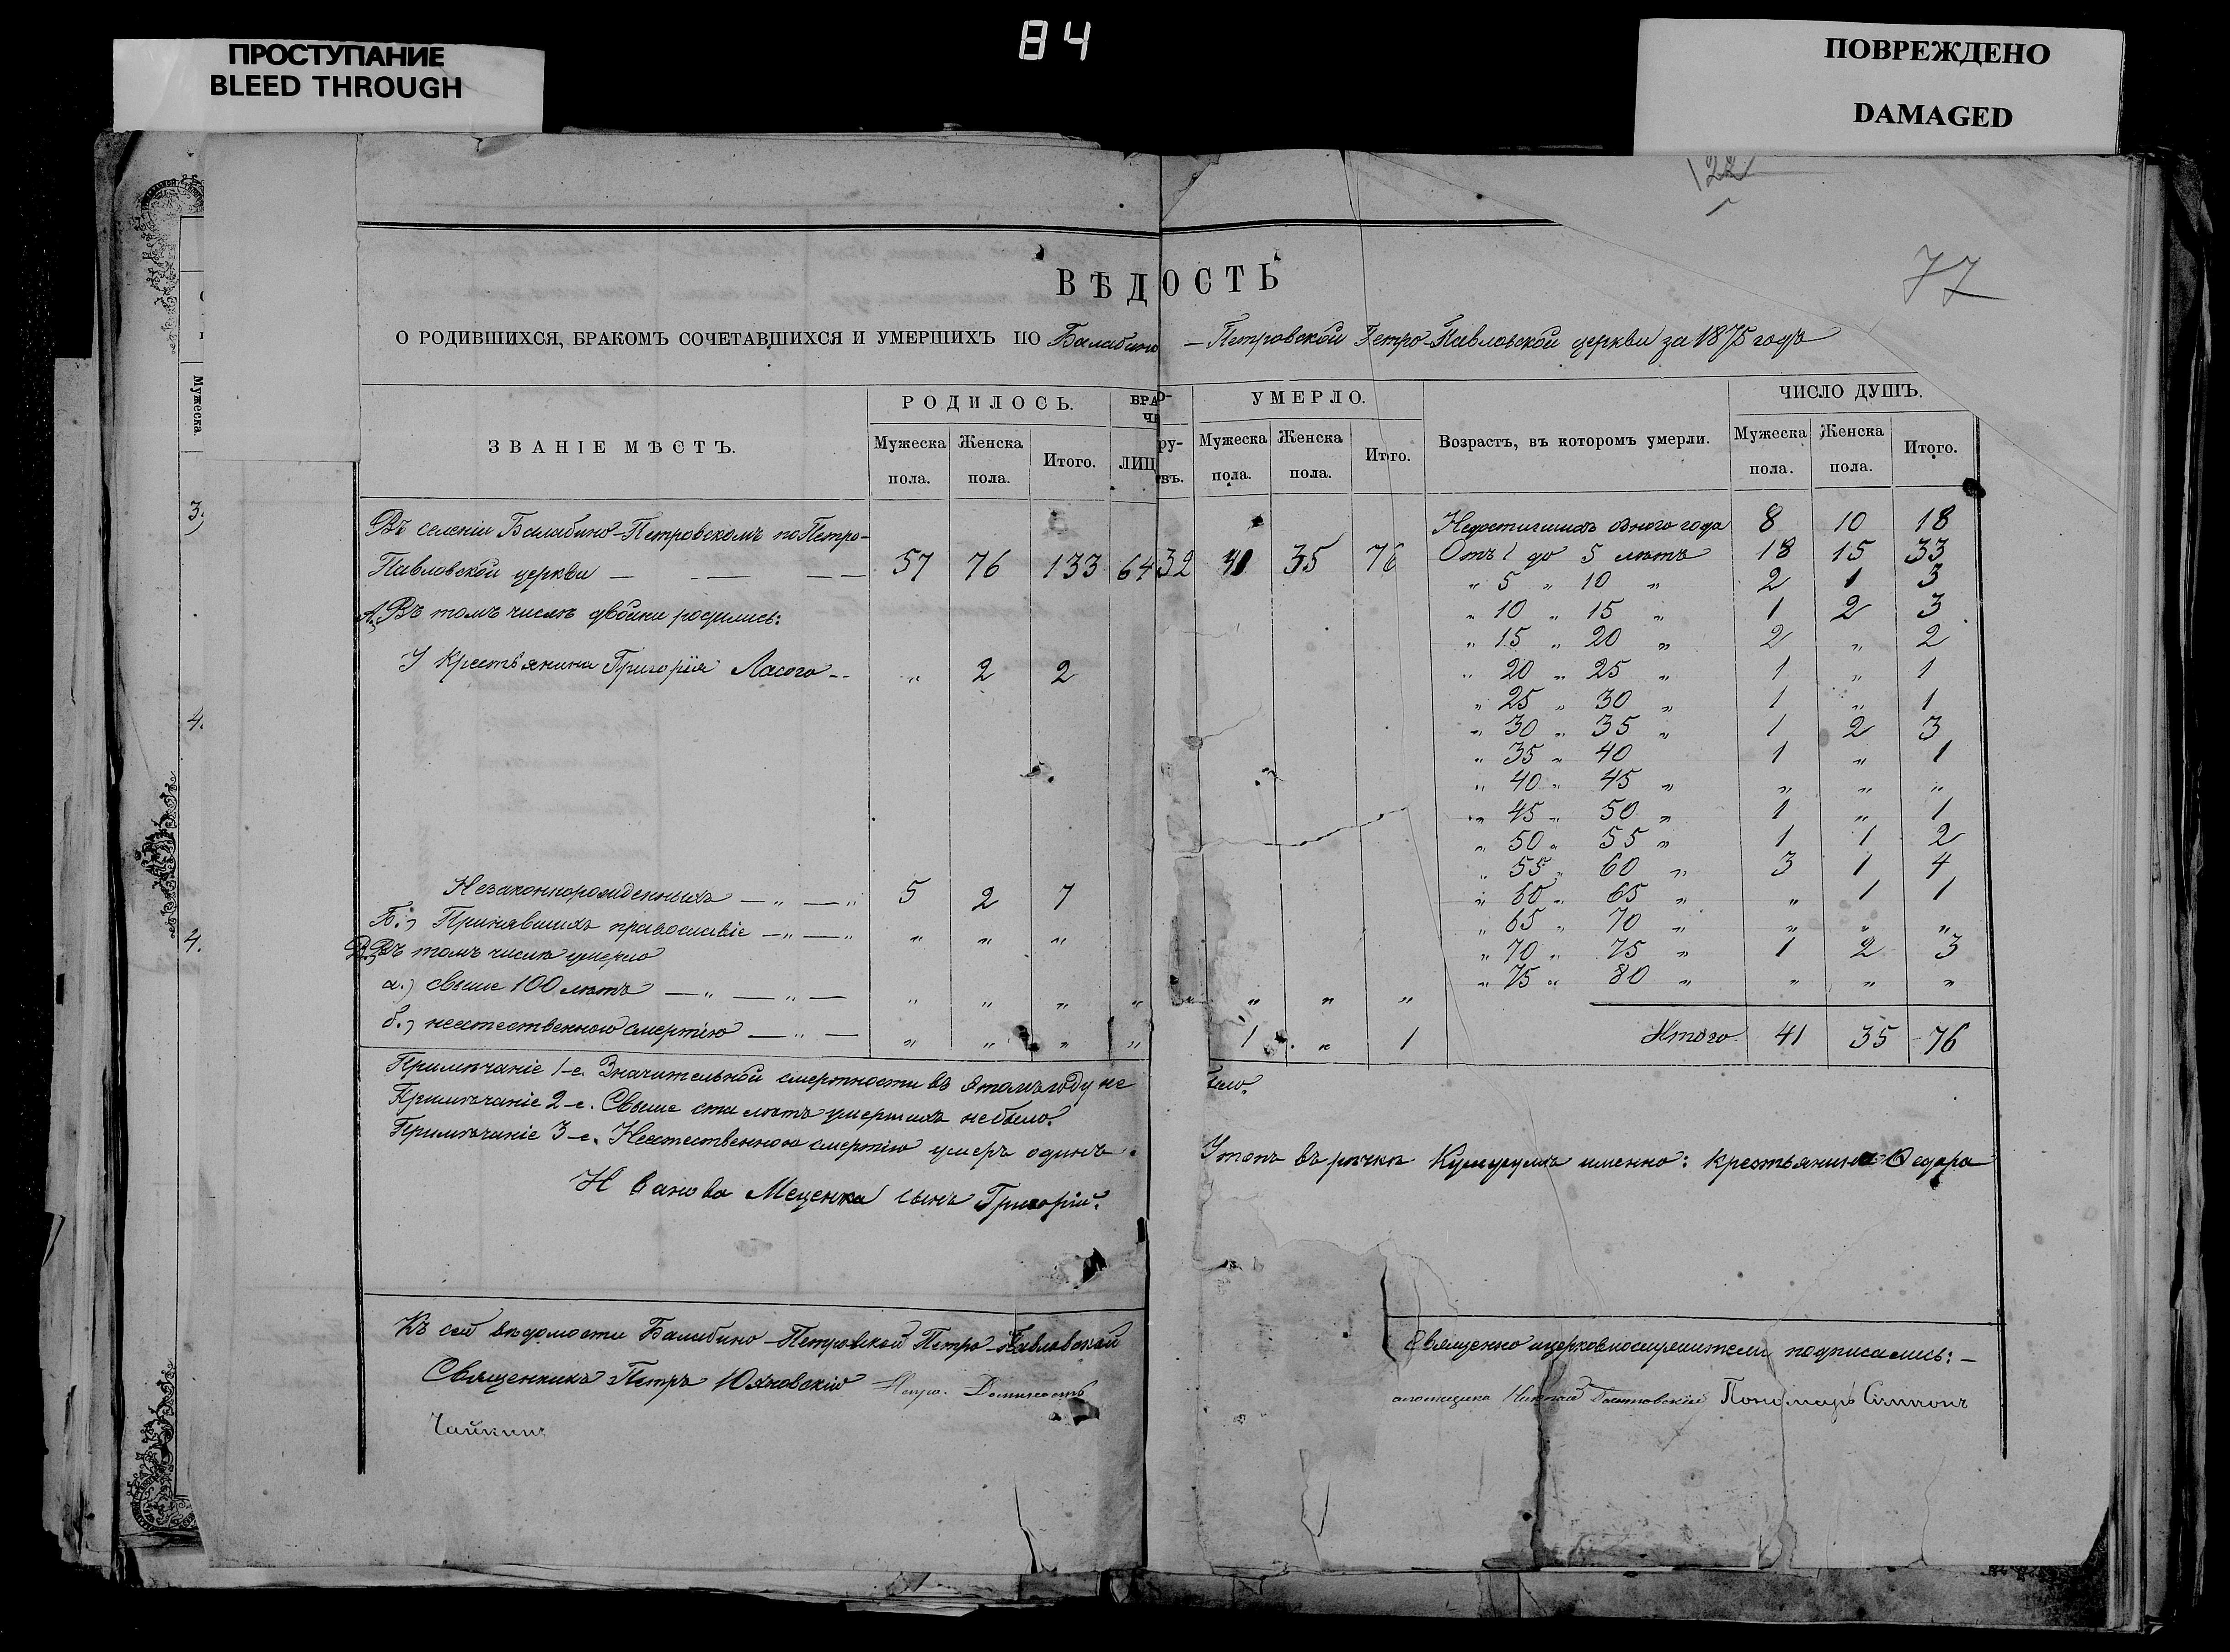 84
ПРОСТУПАНИЕ
BLEED THROUGH
ПОВРЕЖДЕНО
DAMAGED
122
77
ВѢДОСТЬ
О РОДИВШИХСЯ, БРАКОМЪ СОЧЕТАВШИХСЯ И УМЕРШИХЪ ПО Балабино – Петровской Петро-Павловской церкви за 1875 годъ
ЗВАНІЕ МѢСТЪ. РОДИЛОСЬ. БРА О- УМЕРЛО. Возрастъ, въ которомъ умерли. ЧИСЛО ДУШЪ.
Мужеска пола. Женска пола. Итого. ЛИЦ ру- въ. Мужеска пола. Женска пола. Итого. Мужеска пола. Женска пола. Итого.
Мужеска.
3)
4.
4.
Въ селеніи Балабино-Петровскомъ по Петро-
Павловской церкви — — — — 57 76 133 64 32 41 35 76
А., Въ томъ числѣ двойни родились:
У крестьянина Григорія Ласого -- " 2 2
Незаконнорожденныхъ — " — " 5 2 7
Б., Принявшихъ православіе — " — " " " "
В., Въ томъ числѣ умерло
а.) свыше 100 лѣтъ — " — " — " " " " " " " "
б., неестественною смертію — " — " " " " 1 " 1
Недостигшихъ одного года 8 10 18
Отъ 1 до 5 лѣтъ 18 15 33
" 5 " 10 " 2 1 3
" 10 " 15 " 1 2 3
" 15 " 20 " 2 " 2
" 20 " 25 " 1 " 1
" 25 " 30 " 1 " 1
" 30 " 35 " 1 2 3
" 35 " 40 1 " 1
" 40 " 45 " " " "
" 45 " 50 " 1 " 1
" 50 " 55 " 1 1 2
" 55 " 60 " 3 1 4
" 60 " 65 " " 1 1
" 65 " 70 " " " "
" 70 " 75 " 1 2 3
" 75 " 80 " " " "
Итого 41 35 76
Примѣчаніе 1-е. Значительной смертности въ этомъ году не было.
Примѣчаніе 2-е. Свыше ста лѣтъ умершихъ не было.
Примѣчаніе 3-е. Неестественною смертію умеръ одинъ. Утопъ въ рѣчкѣ Кушугумѣ именно: крестьянина Ѳедора
Иванова Меценка сынъ Григорій.
Къ сей вѣдомости Балабино-Петровской Петро-Павловской Священно и церковнослужители подписались: –
Священникъ Петръ Пономарь Симеонъ
Чайкинъ